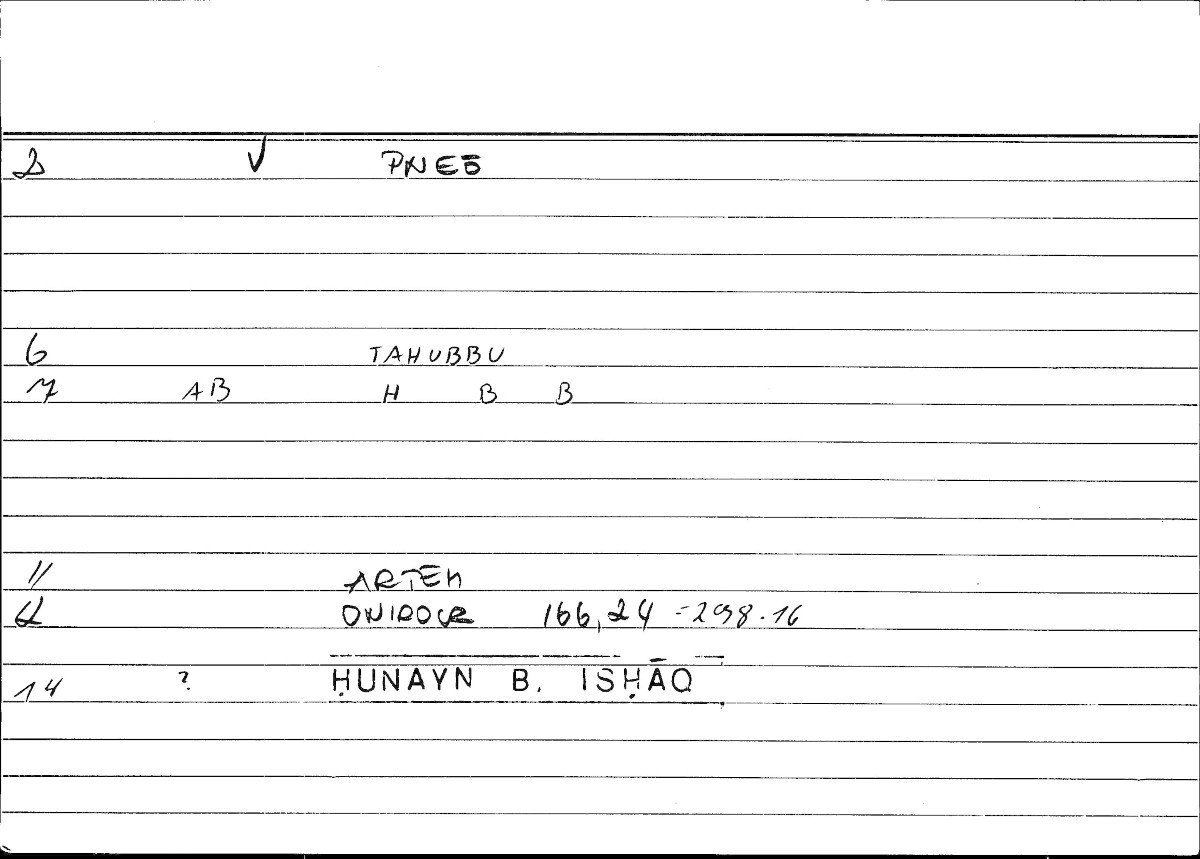 2 √ PNEŌ
6 TAHUBBU
7 AB H B B
11 ARTEM
12 ONIROCR 166,24 = 298.16
14 ? ḤUNAYN B. ISḤĀQ